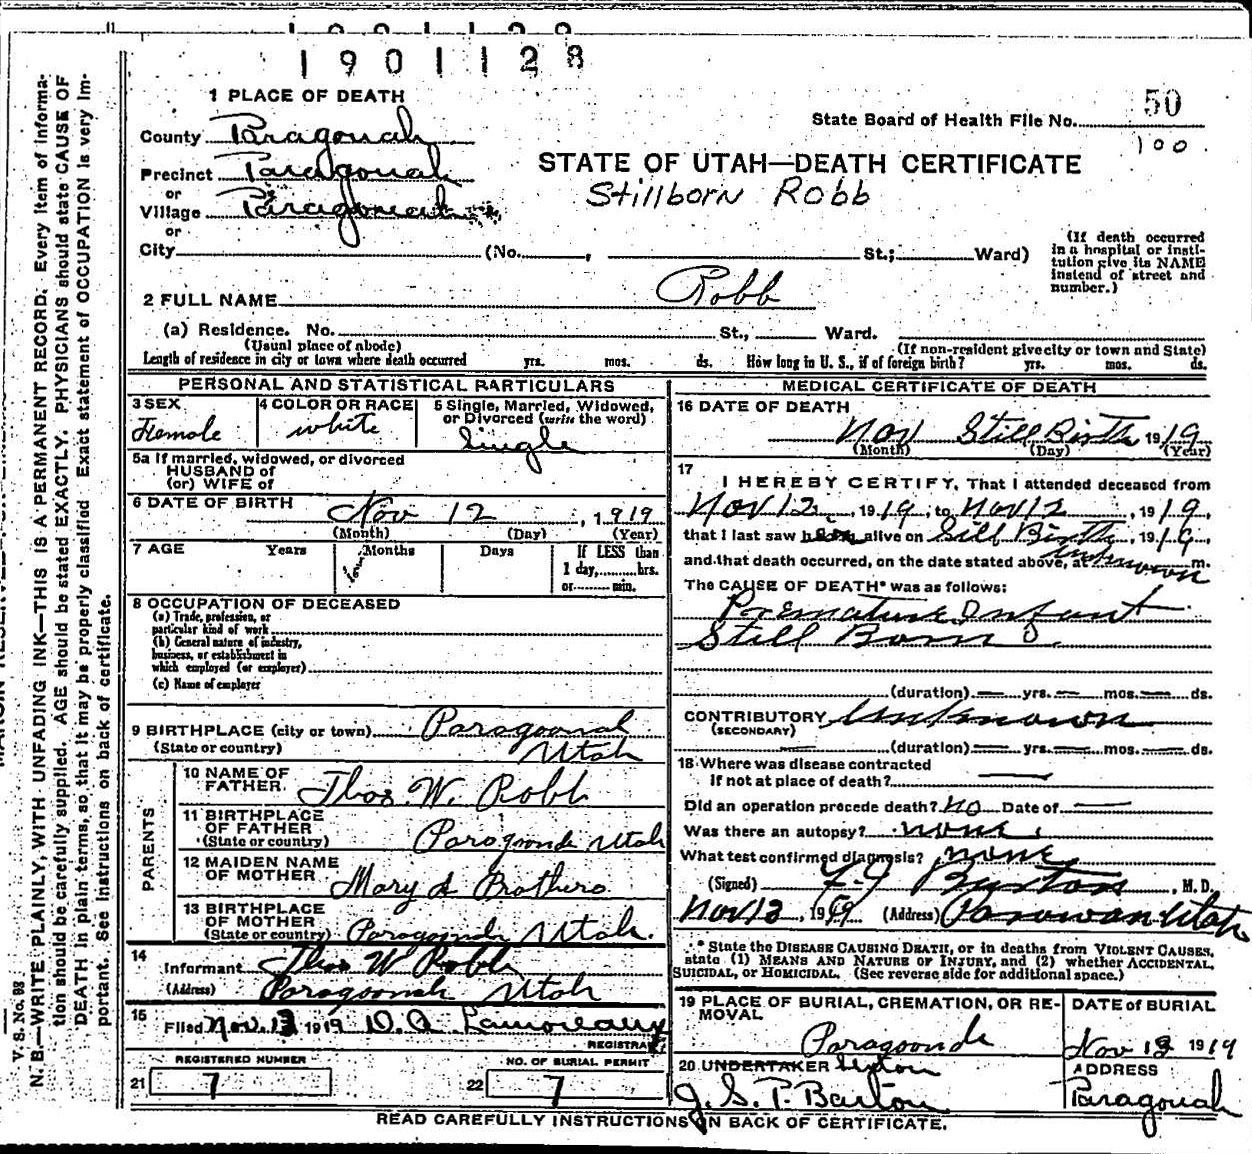 1901128
1 PLACE OF DEATH
50
State Board of Health File No.
100
County Paragonah
STATE OF UTAH—DEATH CERTIFICATE
Precinct Paragonah
Stillborn Robb
or
Village Paragonah
or
City (No. , St.; Ward)
(If death occurred in a hospital or institution give its NAME instead of street and number.)
2 FULL NAME Robb
(a) Residence. No. St., Ward.
(Usual place of abode) (If non-resident give city or town and State)
Length of residence in city or town where death occurred yrs. mos. ds. How long in U. S., if of foreign birth? yrs. mos. ds.
PERSONAL AND STATISTICAL PARTICULARS
3 SEX Female
4 COLOR OR RACE white
5 Single, Married, Widowed, or Divorced (write the word) Single
5a If married, widowed, or divorced
HUSBAND of
(or) WIFE of
6 DATE OF BIRTH Nov 12, 1919
(Month) (Day) (Year)
7 AGE Years Months Days If LESS than
1 day,........hrs.
or........min.
8 OCCUPATION OF DECEASED
(a) Trade, profession, or
particular kind of work
(b) General nature of industry,
business, or establishment in
which employed (or employer)
(c) Name of employer
9 BIRTHPLACE (city or town) Paragoonal
(State or country) Utah
PARENTS
10 NAME OF FATHER Thos. W. Robb
11 BIRTHPLACE OF FATHER (State or country) Paragoonah Utah
12 MAIDEN NAME OF MOTHER Mary A Brothers
13 BIRTHPLACE OF MOTHER (State or country) Paragoonah Utah.
14 Informant Thos W Robb
(Address) Paragoonah Utah
15 Filed Nov. 13 1919 D.A. Lamoreaux
REGISTRAR
REGISTERED NUMBER
21 7
NO. OF BURIAL PERMIT
22 7
MEDICAL CERTIFICATE OF DEATH
16 DATE OF DEATH
Nov Still Birth 1919
(Month) (Day) (Year)
17 I HEREBY CERTIFY, That I attended deceased from
Nov 12, 1919, to Nov 12, 1919,
that I last saw alive on Still Birth, 1919,
and that death occurred, on the date stated above, at unknown m.
The CAUSE OF DEATH* was as follows:
Premature Infant
Still Born
(duration) — yrs. — mos. — ds.
CONTRIBUTORY Unknown
(SECONDARY)
— (duration) — yrs. — mos. — ds.
18 Where was disease contracted
if not at place of death? —
Did an operation precede death? NO Date of —
Was there an autopsy? none.
What test confirmed diagnosis? none
(Signed) Burton, M. D.
Nov 13, 1919 (Address) Parowan Utah
* State the DISEASE CAUSING DEATH, or in deaths from VIOLENT CAUSES,
state (1) MEANS AND NATURE OF INJURY, and (2) whether ACCIDENTAL,
SUICIDAL, or HOMICIDAL. (See reverse side for additional space.)
19 PLACE OF BURIAL, CREMATION, OR REMOVAL
Paragoonah
DATE of BURIAL
Nov 13 1919
20 UNDERTAKER Sexton
J. S. P. Barton
ADDRESS
Paragonah
READ CAREFULLY INSTRUCTIONS ON BACK OF CERTIFICATE.
V. S. No. 98
N. B.—WRITE PLAINLY, WITH UNFADING INK—THIS IS A PERMANENT RECORD. Every item of informa-
tion should be carefully supplied. AGE should be stated EXACTLY. PHYSICIANS should state CAUSE OF
DEATH in plain terms, so that it may be properly classified. Exact statement of OCCUPATION is very im-
portant. See instructions on back of certificate.